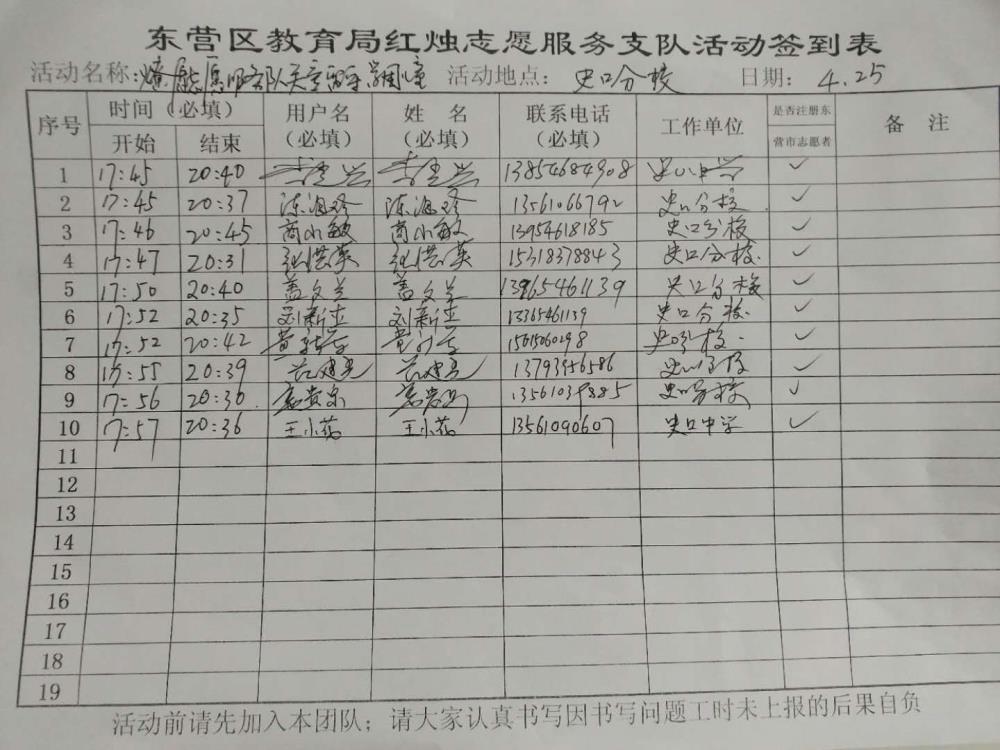 东营区教育局红烛志愿服务支队活动签到表
活动名称: 活动地点: 史口分校 日期: 4.25
序号 时间(必填) 用户名(必填) 姓名(必填) 联系电话(必填) 工作单位 是否注册东营市志愿者 备注
开始 结束
1 17:45 20:40 13854684908 史口中学 ✓
2 17:45 20:37 13561066792 史口分校 ✓
3 17:46 20:45 商小敏 商小敏 13954618185 史口分校 ✓
4 17:47 20:31 张洪英 张洪英 15318378843 史口分校 ✓
5 17:50 20:40 盖文兰 盖文兰 史口分校 ✓
6 17:52 20:35 刘新 刘新 13365461139 史口分校 ✓
7 17:52 20:42 黄 黄 15615060298 史口分校 ✓
8 17:55 20:39 13793956586 史口分校 ✓
9 17:56 20:30 史口分校 ✓
10 17:57 20:36 王小花 王小花 13561090607 史口中学 ✓
11
12
13
14
15
16
17
18
19
活动前请先加入本团队；请大家认真书写因书写问题工时未上报的后果自负